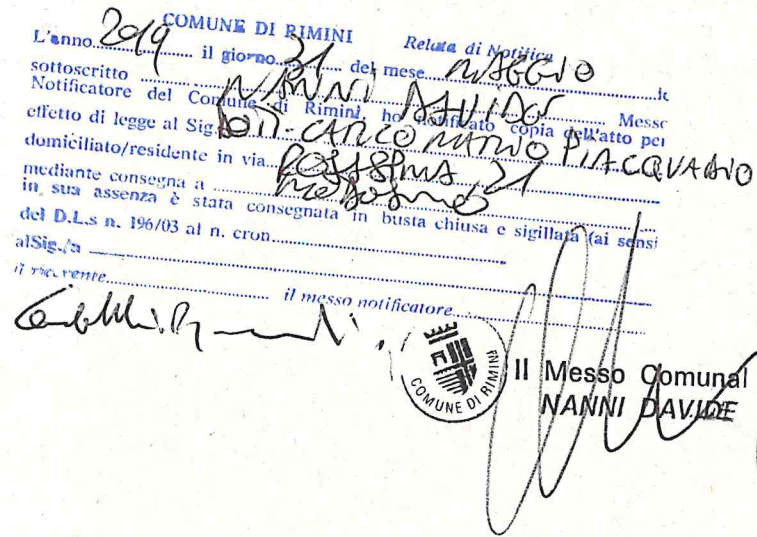 COMUNE DI RIMINI
Relata di Notifica
L'anno 2019 il giorno 21 del mese MAGGIO
sottoscritto NANNI DAVIDE Messo
Notificatore del Comune di Rimini, ho notificato copia dell'atto per
effetto di legge al Sig. DOTT. CARLO MARIO PIACQUADIO
domiciliato/residente in via 21
mediante consegna a
in sua assenza è stata consegnata in busta chiusa e sigillata (ai sensi
del D.L.s n. 196/03 al n. cron.
al Sig./a
il ricevente il messo notificatore
COMUNE DI RIMINI
Il Messo Comunal
NANNI DAVIDE